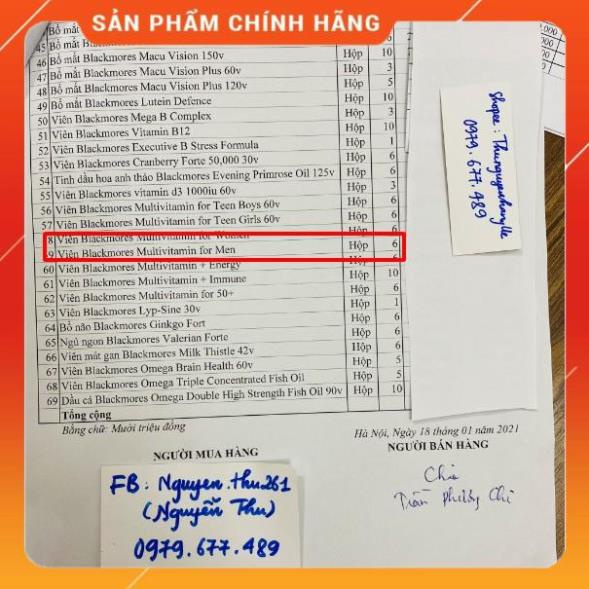 SẢN PHẨM CHÍNH HÃNG
Bổ mắt
45 Bổ mắt Blackmores Macu Vision 150v Hộp 10
46 Bổ mắt Blackmores Macu Vision Plus 60v Hộp 3
47 Bổ mắt Blackmores Macu Vision Plus 120v Hộp 5
48 Bổ mắt Blackmores Lutein Defence Hộp 10
49
50 Viên Blackmores Mega B Complex Hộp 3
51 Viên Blackmores Vitamin B12 Hộp 10
52 Viên Blackmores Executive B Stress Formula Hộp 1
53 Viên Blackmores Cranberry Forte 50,000 30v Hộp 6
54 Tinh dầu hoa anh thảo Blackmores Evening Primrose Oil 125v Hộp 6
55 Viên Blackmores vitamin d3 1000iu 60v Hộp 3
56 Viên Blackmores Multivitamin for Teen Boys 60v Hộp 6
57 Viên Blackmores Multivitamin for Teen Girls 60v Hộp 6
8 Viên Blackmores Multivitamin for Women Hộp 6
9 Viên Blackmores Multivitamin for Men Hộp 6
60 Viên Blackmores Multivitamin + Energy 6
61 Viên Blackmores Multivitamin + Immune Hộp 10
62 Viên Blackmores Multivitamin for 50+ Hộp 6
63 Viên Blackmores Lyp-Sine 30v Hộp 1
64 Bổ não Blackmores Ginkgo Fort Hộp 6
65 Ngủ ngon Blackmores Valerian Forte Hộp 6
66 Viên mát gan Blackmores Milk Thistle 42v Hộp 6
67 Viên Blackmores Omega Brain Health 60v Hộp 5
68 Viên Blackmores Omega Triple Concentrated Fish Oil Hộp 5
69 Dầu cá Blackmores Omega Double High Strength Fish Oil 90v Hộp 10
Tổng cộng
Bằng chữ: Mười triệu đồng
Hà Nội, Ngày 18 tháng 01 năm 2021
NGƯỜI MUA HÀNG
NGƯỜI BÁN HÀNG
FB: Nguyen.thu261
(Nguyễn Thu)
0979.677.489
Chi
Trần Phương Chi
0979.677.489